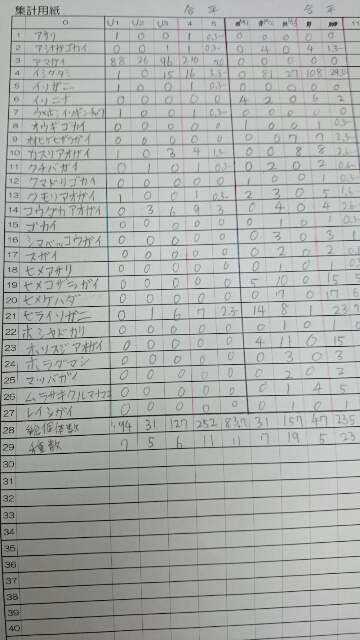 集計用紙 合 平 合 平
0 U1 U2 U3 4 5 11
1 アサリ 1 0 0 1 0.3 0 0 0 0
2 0 0 1 1 0.3 0 4 0 4 1.3
3 アマガイ 88 26 96 210 0 0 0 0
4 イシダタミ 1 0 15 16 5.3 0 81 27 108
5 イソガニ 1 0 0 1 0.3 0 0 0 0
6 イソニナ 0 0 0 0 0 4 2 0 6 2
7 1 0 0 1 0.3 0 0 0 0
8 オウギゴカイ 0 0 0 0 0 1 0 0 1 0.3
9 0 0 0 0 0 0 0 7 7 2.3
10 カスリアオガイ 0 1 3 4 1.3 0 0 8 8 2.6
11 クチバガイ 0 1 0 1 0.3 0 2 0 2
12 クマドリゴカイ 0 0 0 0 0 1 0 0 1 0.3
13 クモリアオガイ 1 0 0 1 0.3 2 3 0 5 1.6
14 コウダカアオガイ 0 3 6 9 3 0 4 0 4
15 ゴカイ 0 0 0 0 0 0 1 0 1
16 シマベッコウガイ 0 0 0 0 0 0 3 0 3 1
17 スガイ 0 0 0 0 0 0 2 0 2
18 ヒメアサリ 0 0 0 0 0 0 1 0 1
19 ヒメコザラガイ 0 0 0 0 0 5 10 0 15 5
20 ヒメケハダ 0 0 0 0 0 0 17 0 17
21 ヒライソガニ 0 1 6 7 2.3 14 8 1 23
22 ホシヤドカリ 0 0 0 0 0 0 1 0 1
23 ホソスジアオガイ 0 0 0 0 0 4 11 0 15
24 ホラダマシ 0 0 0 0 0 0 3 0 3
25 マツバガイ 0 0 0 0 0 0 2 0 2
26 ムラサキクルマナマコ 0 0 0 0 0 0 1 4 5
27 レイシガイ 0 0 0 0 0 0 1 0 1
28 総個体数 94 31 127 252 83.7 31 157 47 235
29 種数 7 5 6 11 11 7 19 5 23
30
31
32
33
34
35
36
37
38
39
40